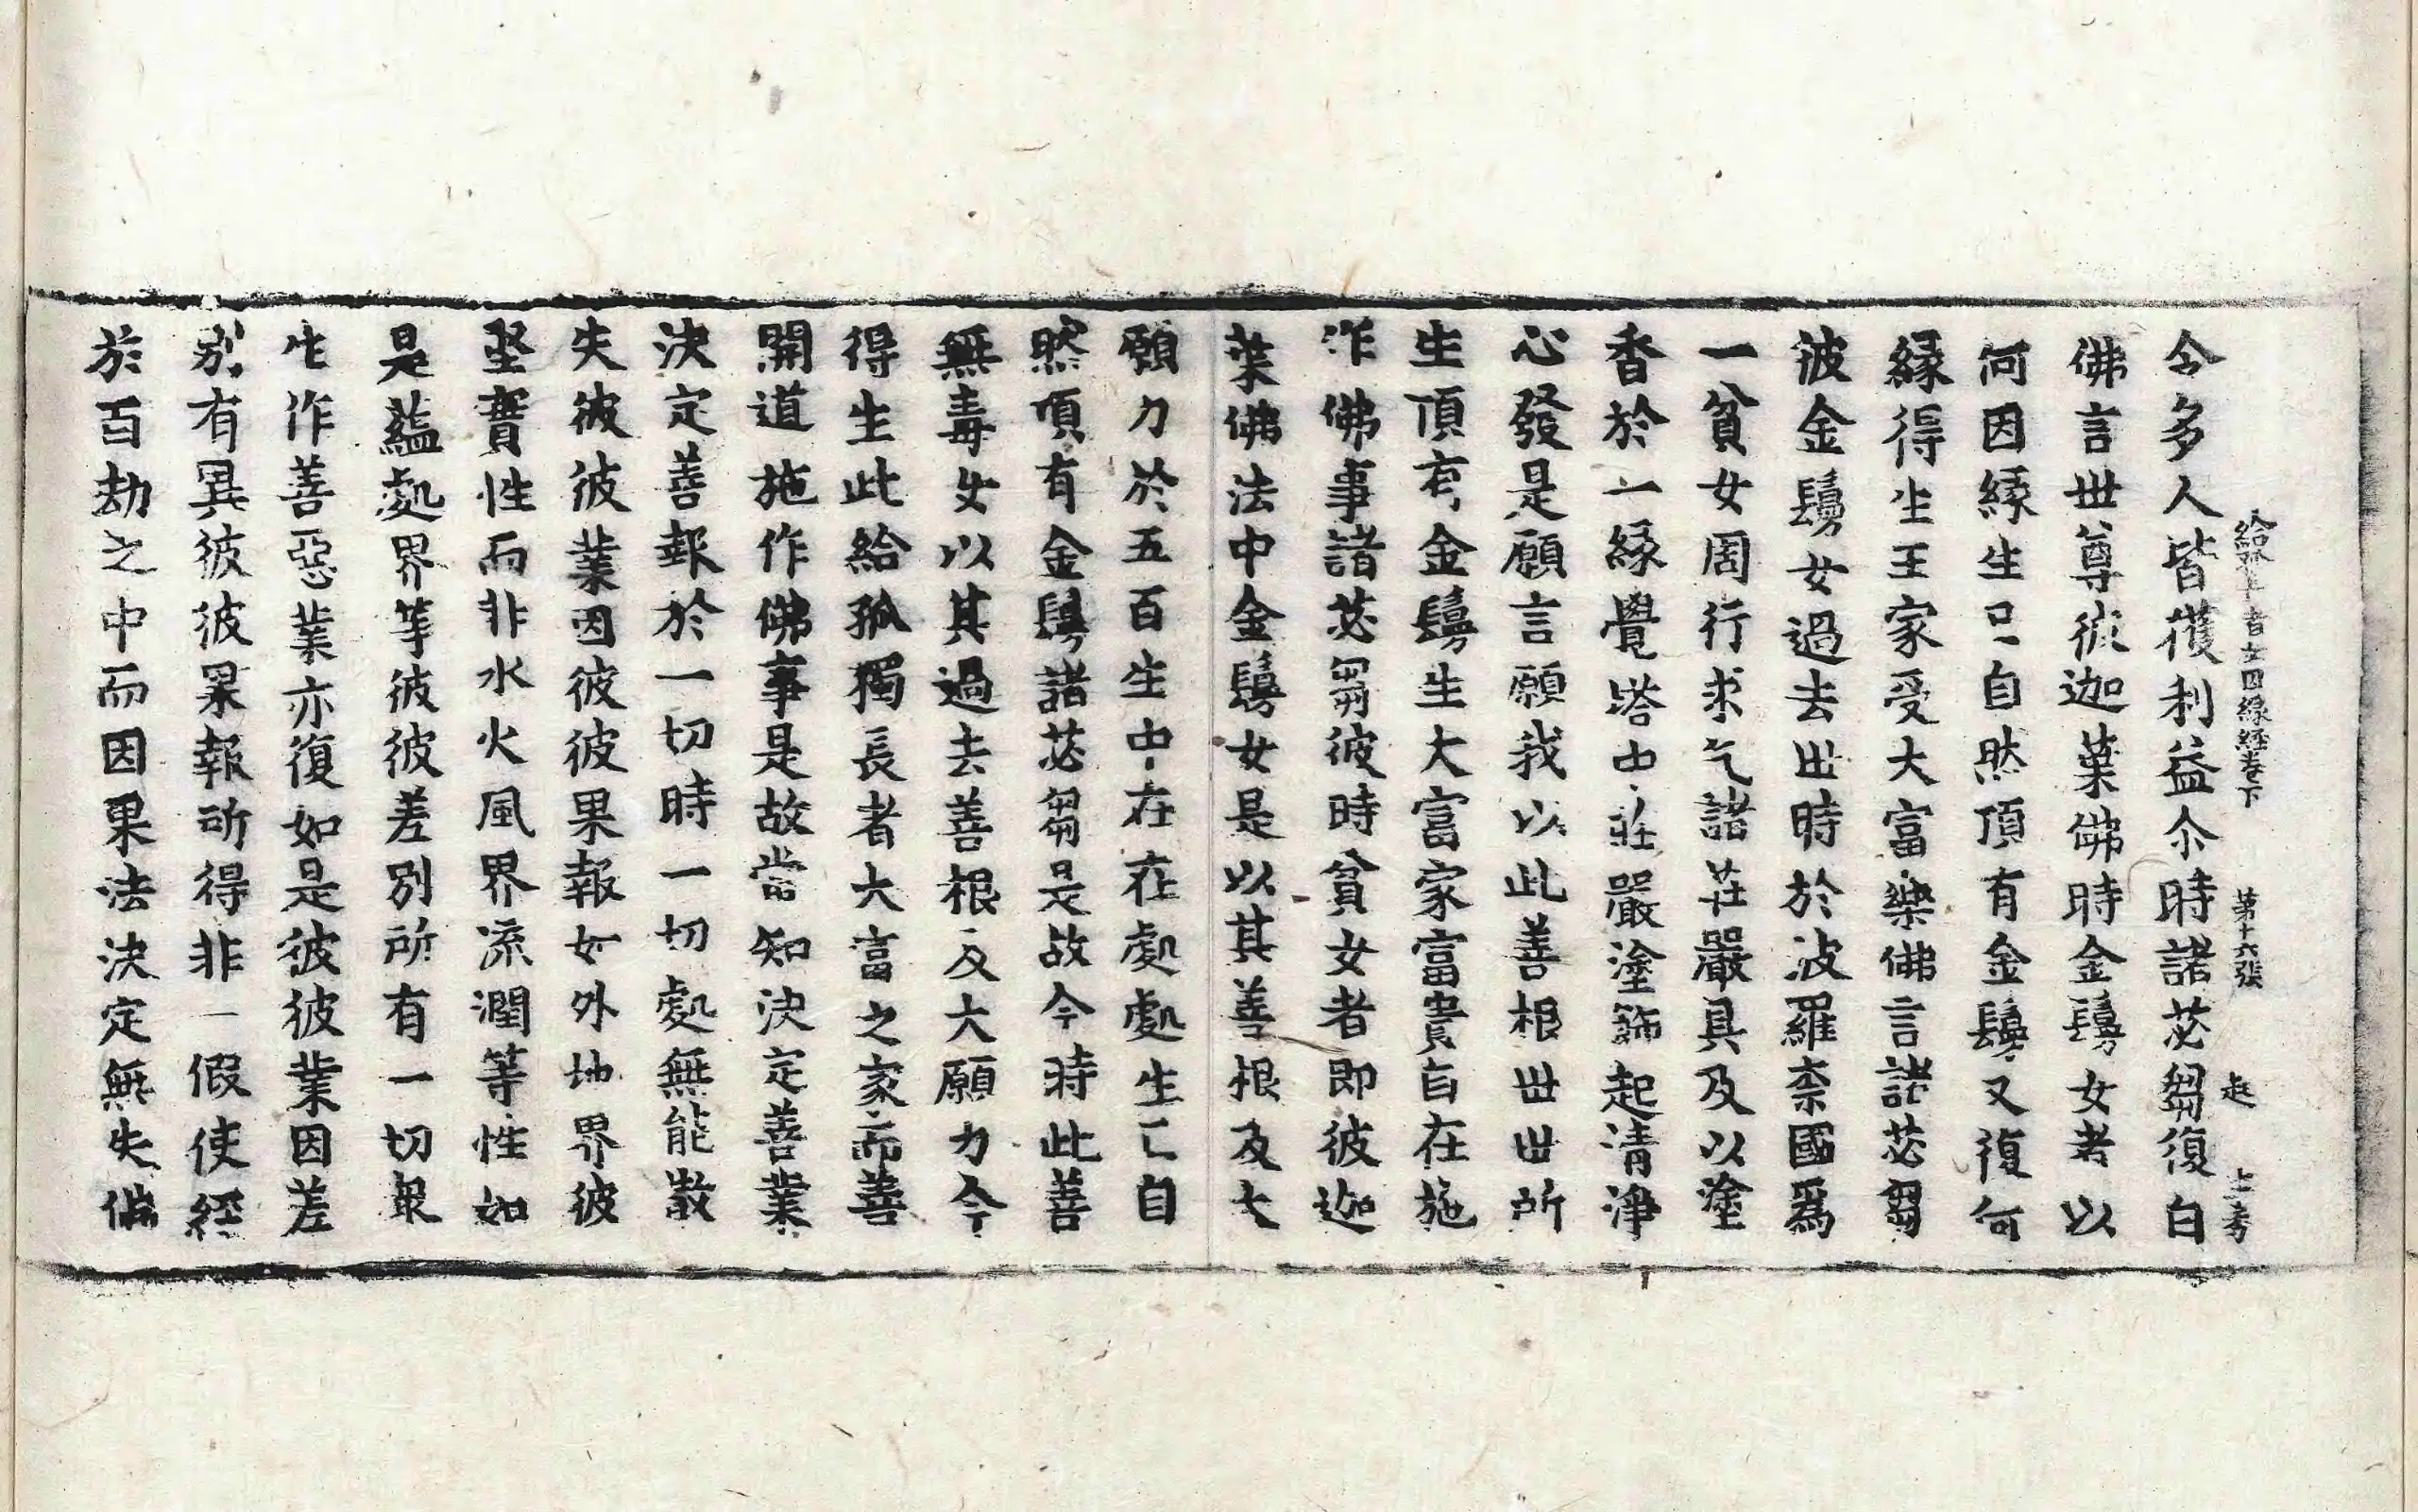 給孤長者女因縁経巻下　第十六張　起　士秀
令多人皆獲利益尒時諸苾芻復白
佛言世尊彼迦葉佛時金鬘女者以
何因縁生已自然頂有金鬘又復何
縁得生王家受大富樂佛言諸苾芻
彼金鬘女過去世時於波羅柰國爲
一貧女周行求乞諸莊嚴具及以塗
香於一縁覺塔中莊嚴塗飾起清淨
心發是願言願我以此善根世世所
生頂有金鬘生大富家富貴自在施
作佛事諸苾芻彼時貧女者即彼迦
葉佛法中金鬘女是以其善根及大
願力於五百生中在在處處生已自
然頂有金鬘諸苾芻是故今時此善
無毒女以其過去善根及大願力今
得生此給孤獨長者大富之家而善
開道施作佛事是故當知決定善業
決定善報於一切時一切處無能散
失彼彼業因彼彼果報如外地界彼
堅實性而非水火風界流潤等性如
是蘊處界等彼彼差別所有一切衆
生作善惡業亦復如是彼彼業因差
別有異彼彼果報所得非一假使經
於百劫之中而因果法決定無失佛